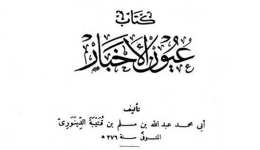 كتاب
عيون الأخبار
تأليف
أبي محمد عبدالله بن مسلم بن قتيبة الدينوري
المتوفى سنة ٢٧٦ ه